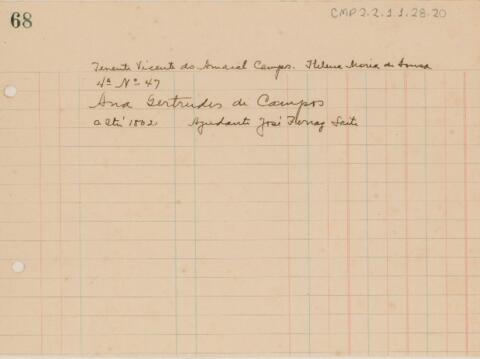 68
CMP 2.2.1.1.28-20
Tenente Vicente do Amaral Campos. Helena Maria de Sousa
4º Nº 47
Ana Gertrudes de Campos
a Itú 1802 Ajudante José Ferraz Leite